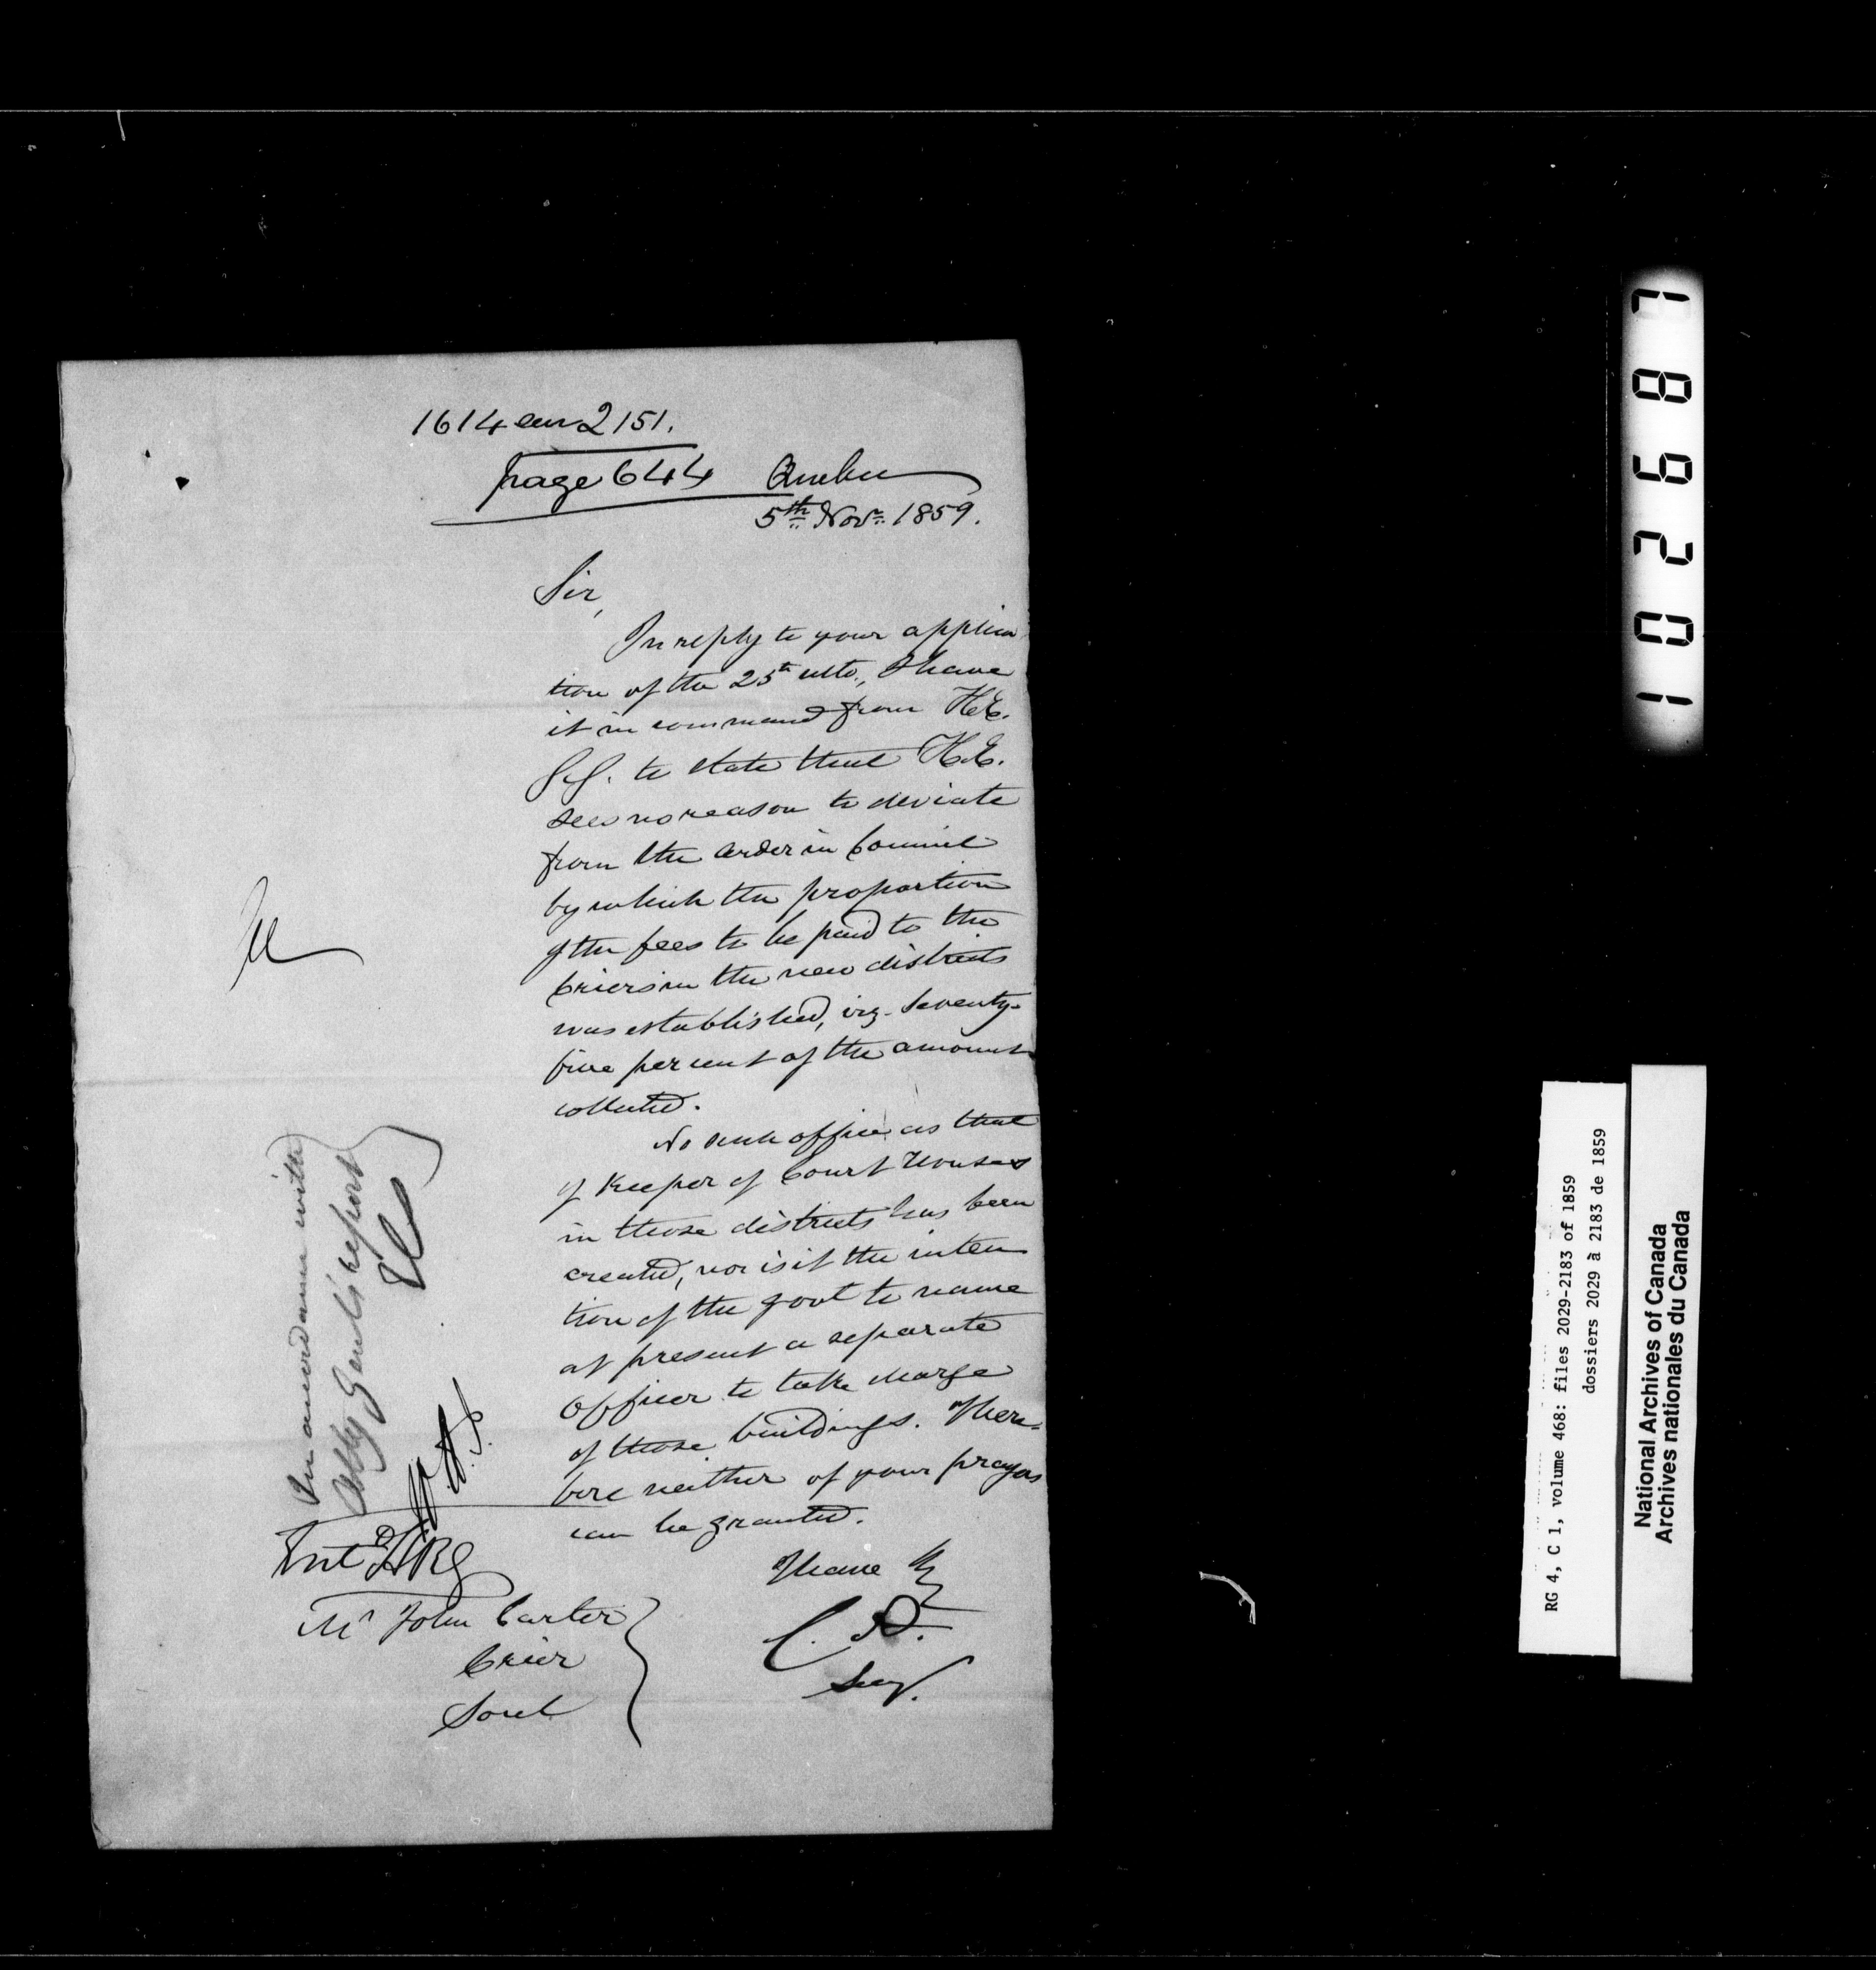 1614 eur 2151.
page 644
Quebec
5th Novr. 1859.
Sir,
In reply to your applica
tion of the 25th ulto., I have
it in command from H.E.
G.G. to state that H.E.
sees no reason to deviate
from the Order in Council
by which the proportion
of the fees to be paid to the
Criers in the new districts
was established, viz. Seventy-
five per cent of the amount
collected.
No such office as that
of Keeper of Court Houses
in those districts has been
created, nor is it the inten
tion of the govt to name
at present a separate
Officer to take charge
of those buildings. There-
fore neither of your prayers
can be granted.
I have
C. A.
Secy.
Mr John Carter
Crier
Sorel
In accordance with
Atty Genl's report
Entd
101 2 9 8 7
RG 4, C 1, volume 468: files 2029-2183 of 1859
dossiers 2029 à 2183 de 1859
National Archives of Canada
Archives nationales du Canada